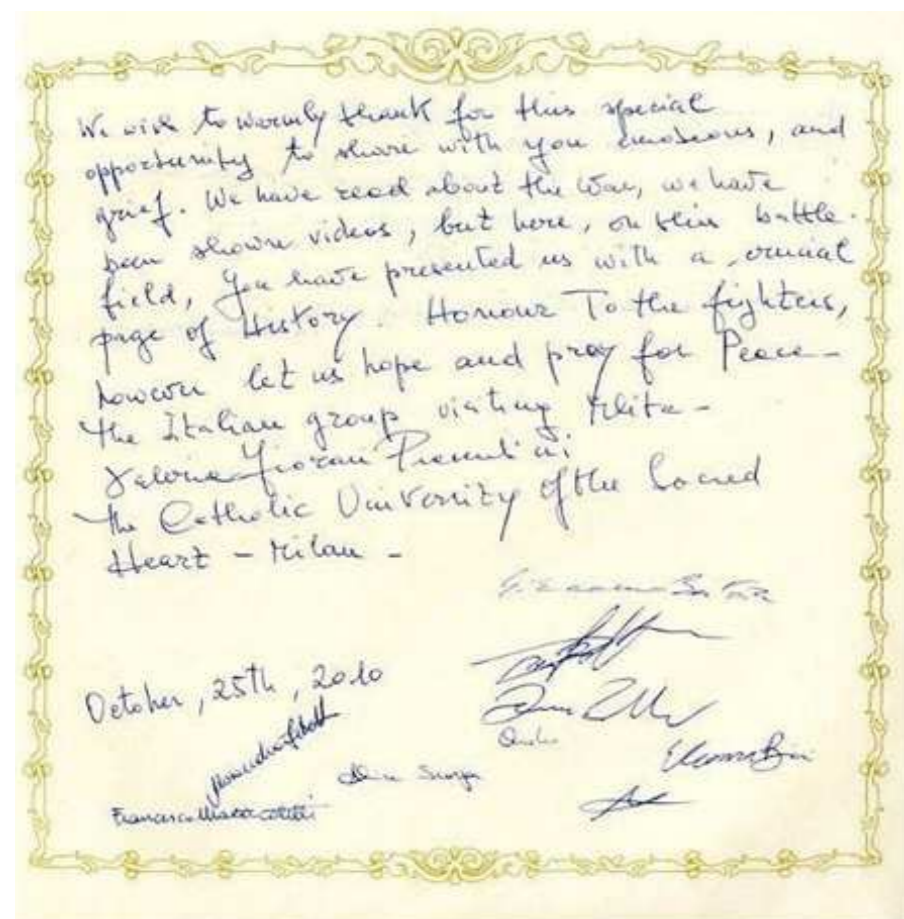 We wish to warmly thank for this special
opportunity to share with you emotions, and
grief. We have read about the War, we have
been shown videos, but here, on this battle-
field, you have presented us with a crucial
page of History. Honour To the fighters,
however let us hope and pray for Peace-
The Italian group visiting Mlita-
Valeria Fiorani Piacentini
The Catholic University of the Sacred
Heart - Milan -
October, 25th, 2010